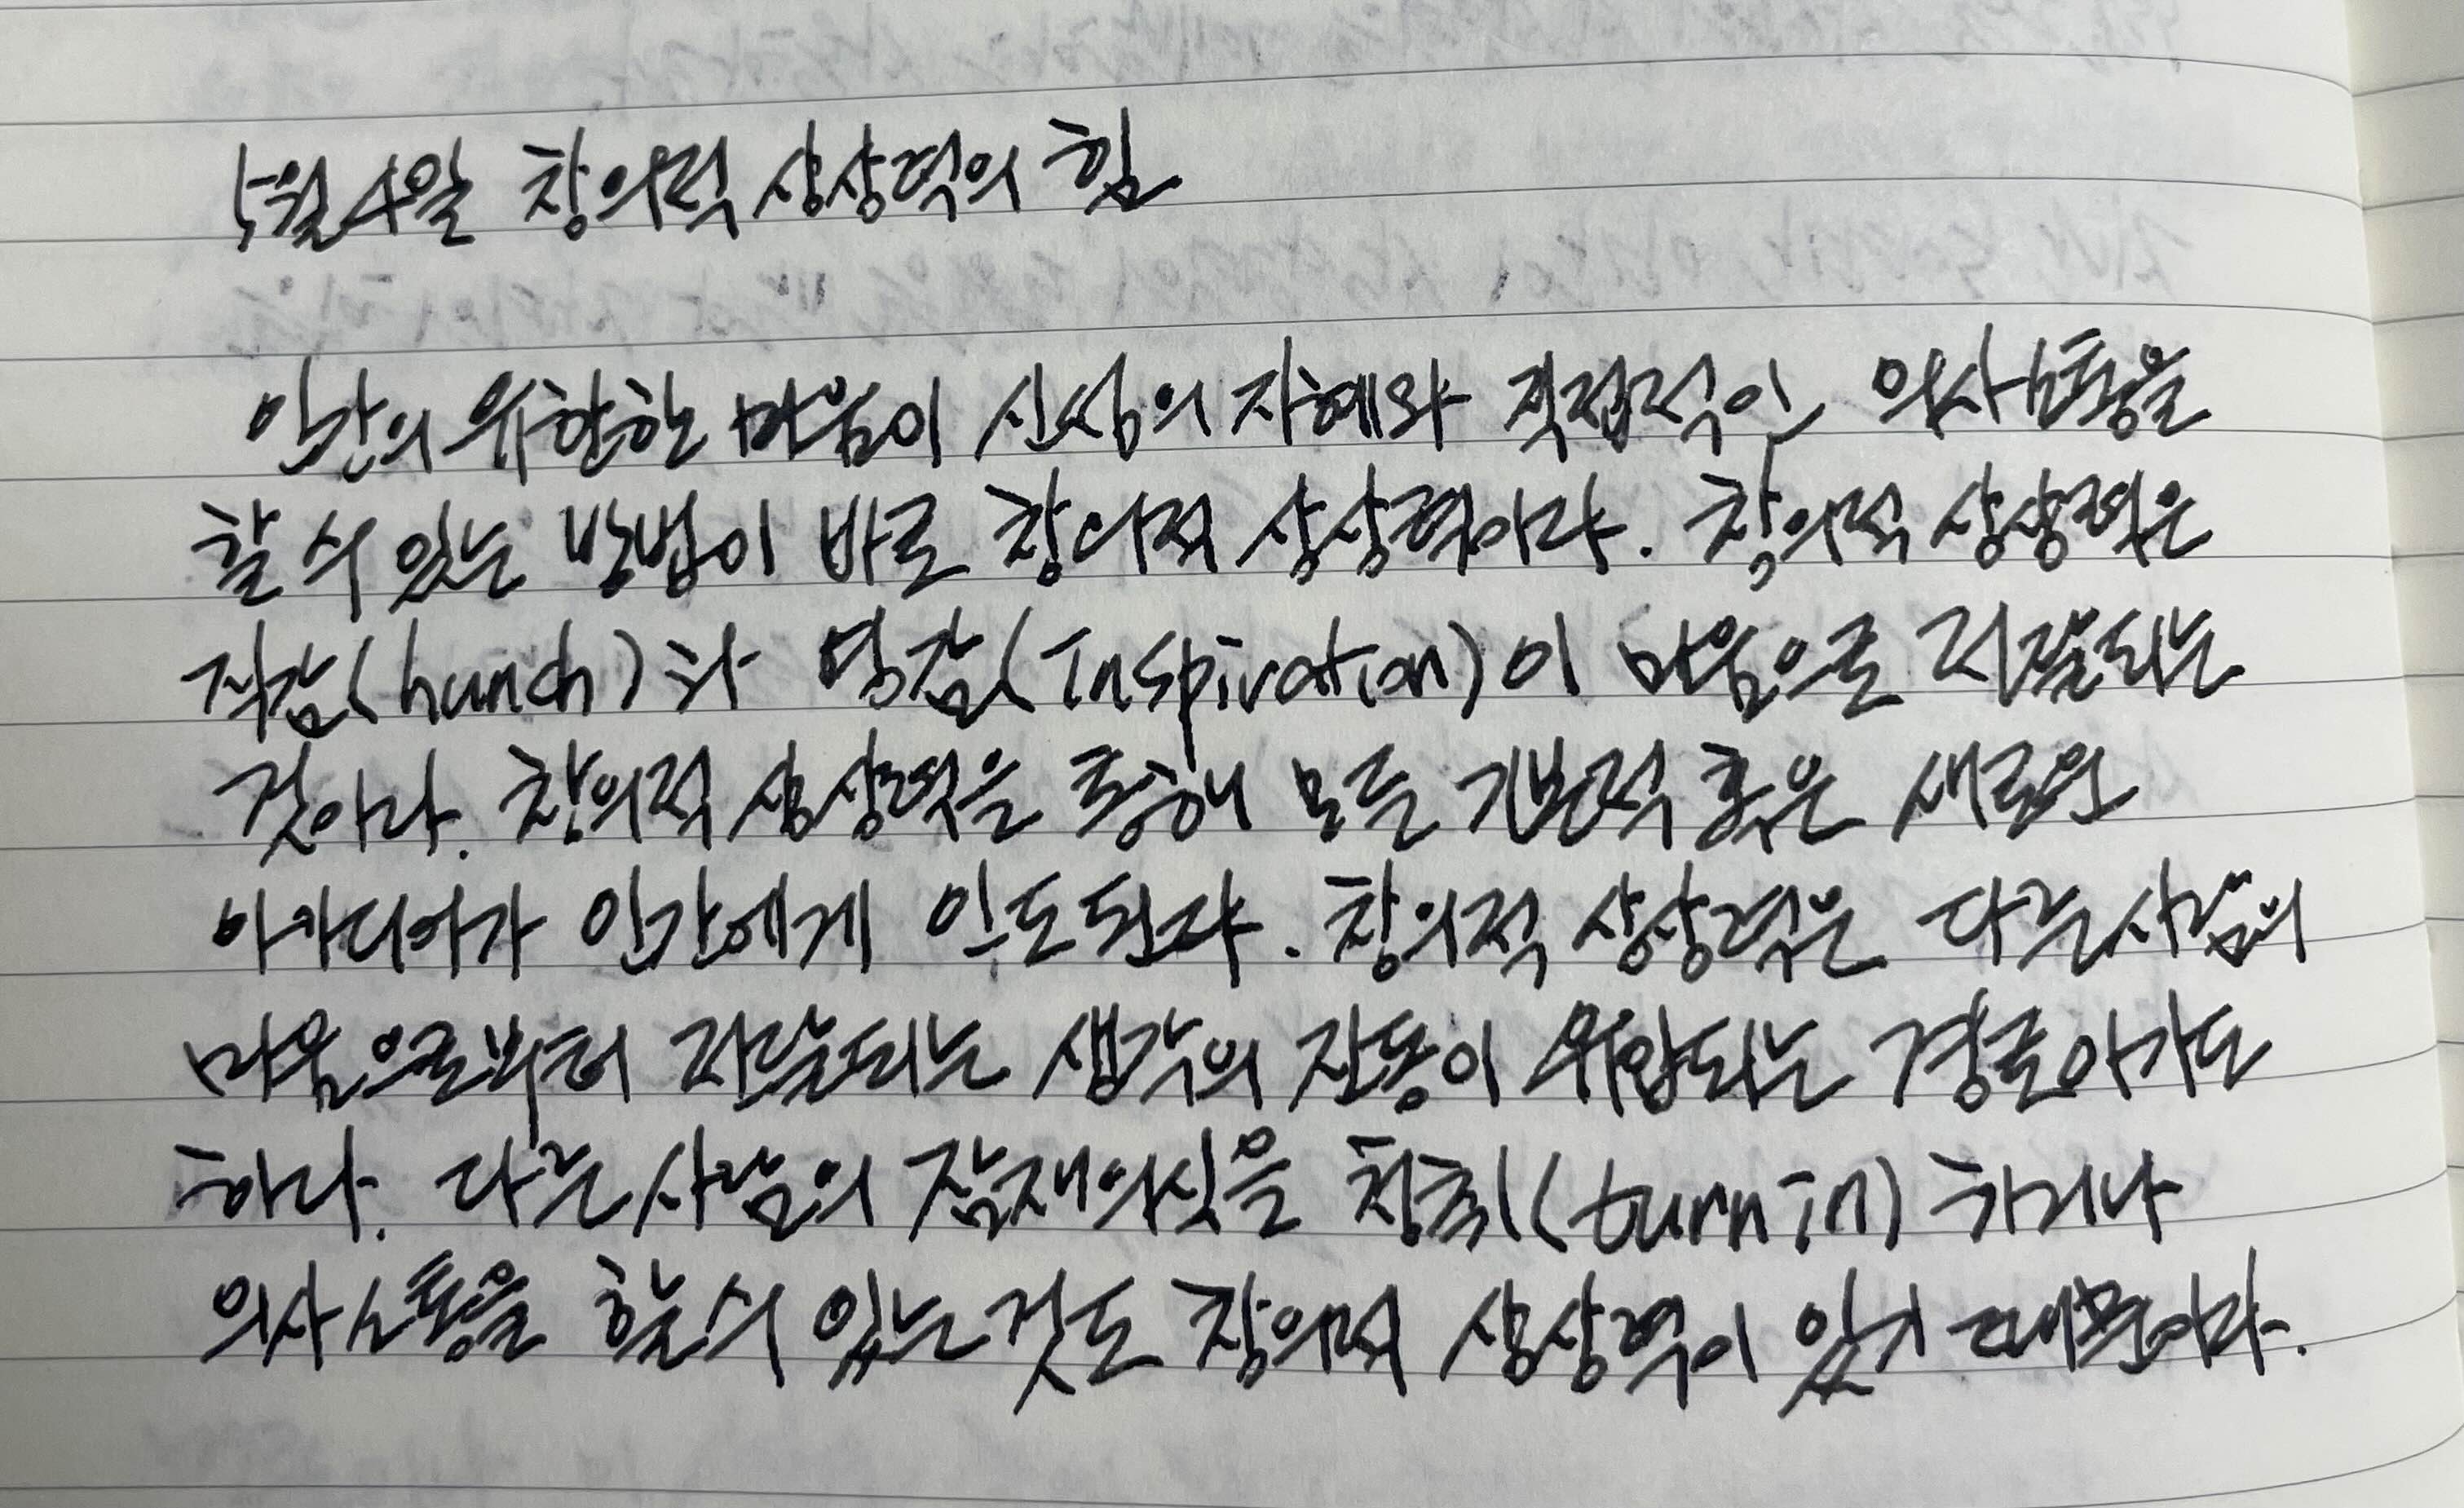 5월 4일 창의적 상상력의 힘
인간의 유한한 마음이 신성의 지혜와 직접적인 의사소통을
할 수 있는 방법이 바로 창의적 상상력이다. 창의적 상상력은
직감(hunch)과 영감(Inspiration)이 마음으로 전달되는
것이다. 창의적 상상력을 통해 모든 기본적 혹은 새로운
아이디어가 인간에게 인도된다. 창의적 상상력은 다른 사람의
마음으로부터 전달되는 생각의 진동이 유입되는 경로이기도
하다. 다른 사람의 잠재의식을 청취(turn in)하거나
의사소통을 할 수 있는 것도 창의적 상상력이 있기 때문이다.